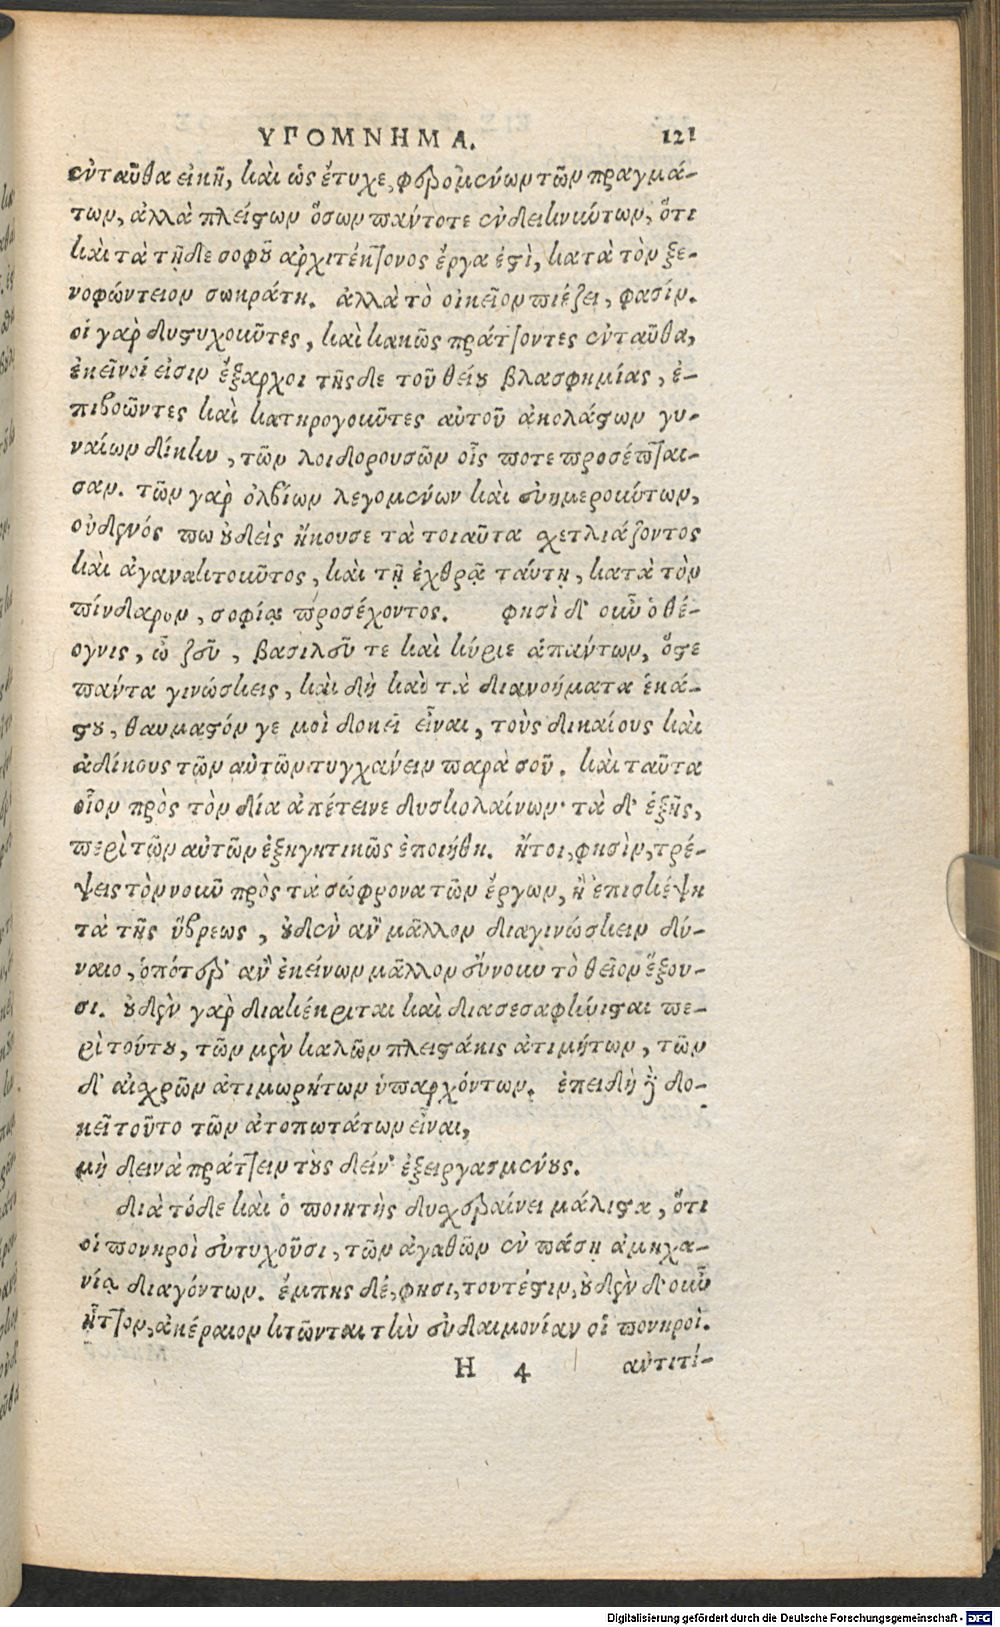 ΥΠΟΜΝΗΜΑ. 121
ἐνταῦθα εἰκῆ, καὶ ὡς ἔτυχε, φερομένων τῶν πραγμά-
των, ἀλλὰ πλείστων ὅσων πάντοτε ἐνδεικνύντων, ὅτι
καὶ τὰ τῇδε σοφοῦ ἀρχιτέκτονος ἔργα ἐστὶ, κατὰ τὸν ξε-
νοφώντειον σωκράτη. ἀλλὰ τὸ οἰκεῖον πιέζει, φασίν.
οἱ γὰρ δυστυχοῦντες, καὶ κακῶς πράττοντες ἐνταῦθα,
ἐκεῖνοί εἰσιν ἔξαρχοι τῆς δε τοῦ θείου βλασφημίας, ἐ-
πιβοῶντες καὶ κατηγοροῦντες αὐτοῦ ἀκολάστων γυ-
ναίων δίκην, τῶν λοιδορουσῶν οἷς ποτε προσέπται-
σαν. τῶν γὰρ ὀλβίων λεγομένων καὶ εὐημερούντων,
οὐδενός πω οὐδεὶς ἤκουσε τὰ τοιαῦτα σχετλιάζοντος
καὶ ἀγανακτοῦντος, καὶ τῇ ἐχθρᾷ ταύτῃ, κατὰ τὸν
πίνδαρον, σοφίᾳ προσέχοντος. φησὶ δ' οὖν ὁ θέ-
ογνις, ὦ ζεῦ, βασιλεῦ τε καὶ κύριε ἁπάντων, ὅστε
πάντα γινώσκεις, καὶ δὴ καὶ τὰ διανοήματα ἑκά-
στου, θαυμαστόν γε μοὶ δοκεῖ εἶναι, τοὺς δικαίους καὶ
ἀδίκους τῶν αὐτῶν τυγχάνειν παρὰ σοῦ. καὶ ταῦτα
οἷον πρὸς τὸν δία ἀπέτεινε δυσκολαίνων· τὰ δ' ἑξῆς,
περὶ τῶν αὐτῶν ἐξηγητικῶς ἐποιήθη. ἤτοι, φησὶν, τρέ-
ψεις τὸν νοῦν πρὸς τὰ σώφρονα τῶν ἔργων, ἢ ἐπισκέψῃ
τὰ τῆς ὕβρεως, οὐδὲν ἂν μᾶλλον διαγινώσκειν δύ-
ναιο, ὁπότερ' ἂν ἐκείνων μᾶλλον εὔνουν τὸ θεῖον ἕξου-
σι. οὐδὲν γὰρ διακέκριται καὶ διασεσαφήνισται πε-
ρὶ τούτου, τῶν μὲν καλῶν πλειστάκις ἀτιμήτων, τῶν
δ' αἰσχρῶν ἀτιμωρήτων ὑπαρχόντων. ἐπειδὴ δὲ δο-
κεῖ τοῦτο τῶν ἀτοπωτάτων εἶναι,
μὴ δεινὰ πράττειν τοὺς δείν' ἐξειργασμένους.
διὰ τόδε καὶ ὁ ποιητὴς δυσχεραίνει μάλιστα, ὅτι
οἱ πονηροὶ εὐτυχοῦσι, τῶν ἀγαθῶν ἐν πάσῃ ἀμηχα-
νίᾳ διαγόντων. ἔμπης δέ, φησι, τουτέστιν, οὐδὲν δ' οὖν
ἧττον, ἀκέραιον κτῶνται τὴν εὐδαιμονίαν οἱ πονηροὶ.
H 4 αὐτιτί-
Digitalisierung gefördert durch die Deutsche Forschungsgemeinschaft - DFG